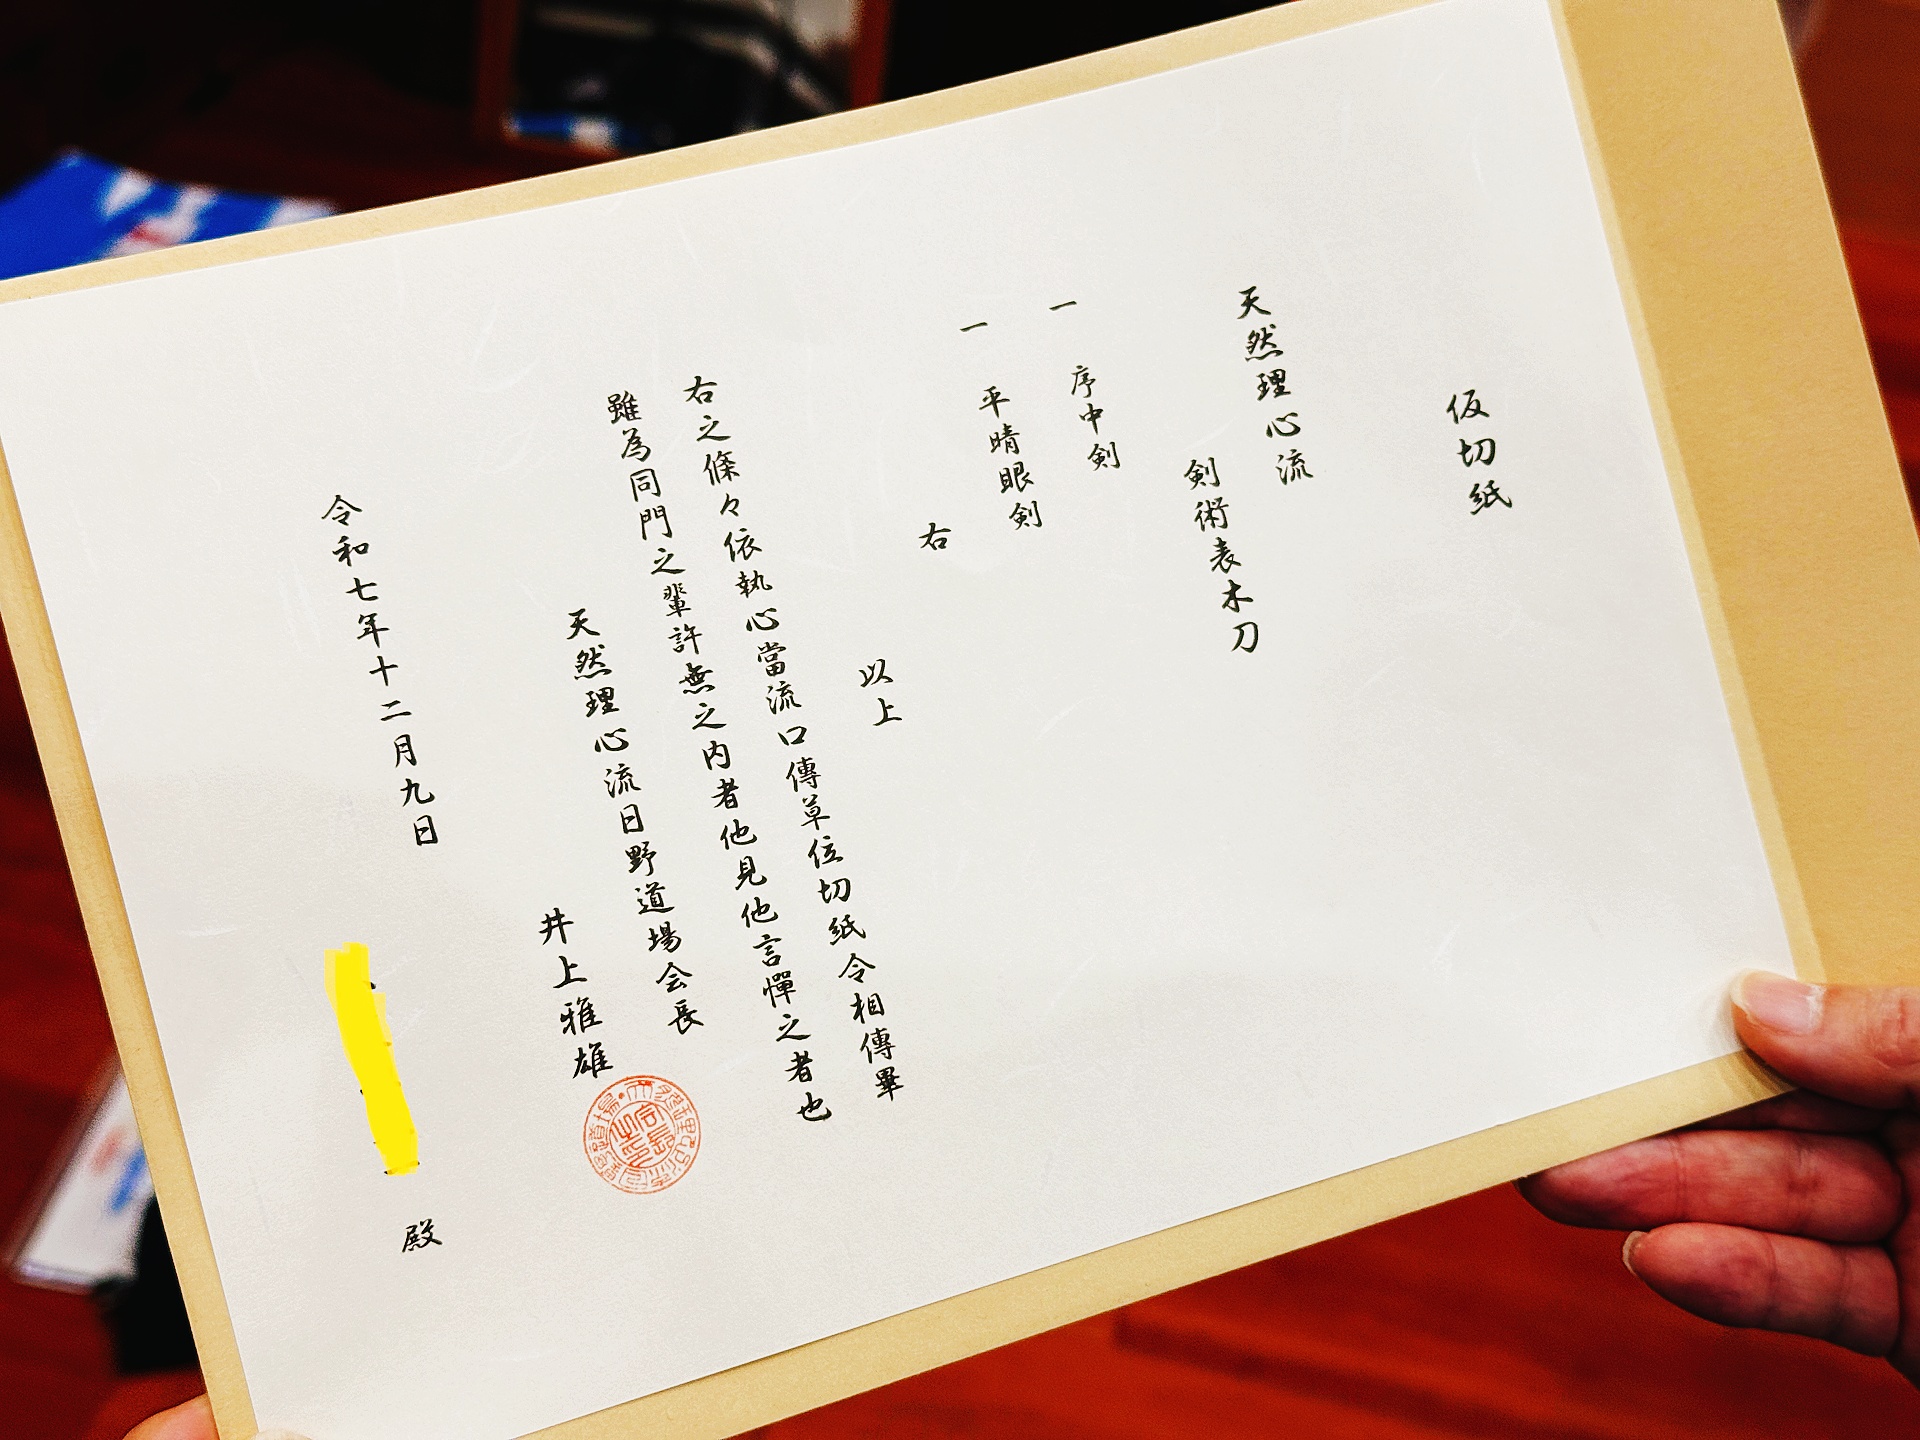 仮切紙
天然理心流
剣術表木刀
一 序中剣
一 平晴眼剣
右
以上
右之條々依執心當流口傳草位切紙令相傳畢
雖為同門之輩許無之内者他見他言憚之者也
天然理心流日野道場会長
井上雅雄
令和七年十二月九日
殿